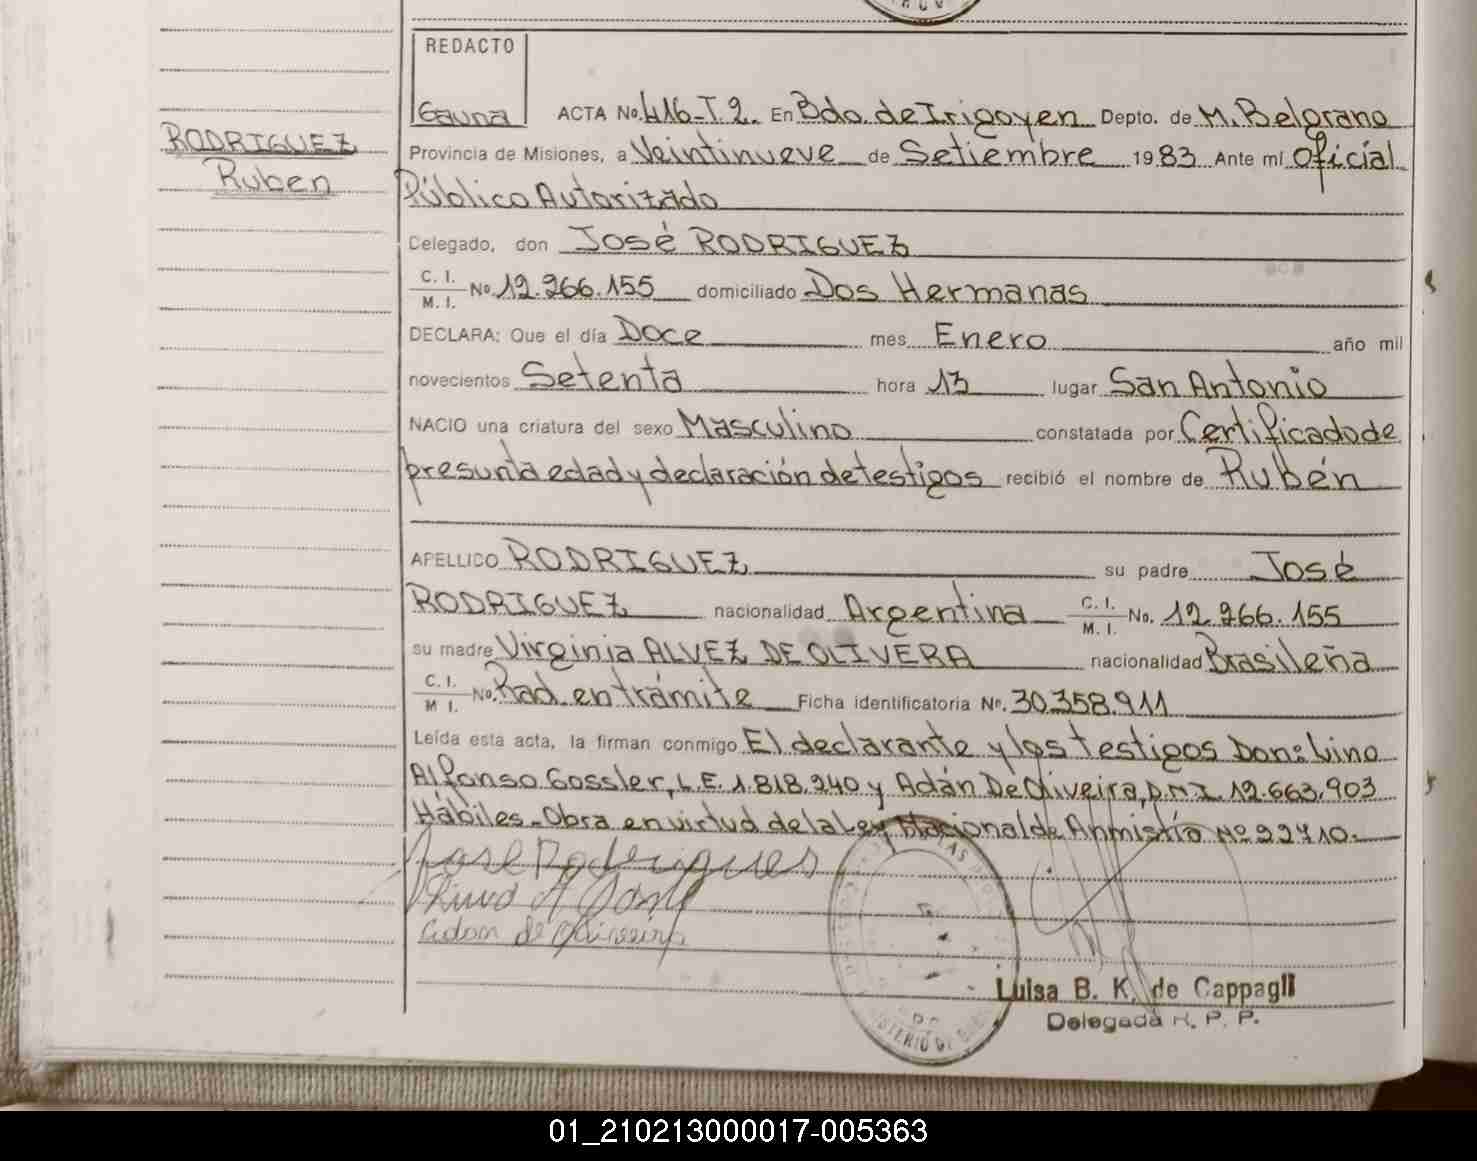 REDACTO
Gauna
ACTA No. 416-T.2. En Bdo. de Irigoyen Depto. de M. Belgrano
RODRIGUEZ
Ruben
Provincia de Misiones, a Veintinueve de Setiembre 1983 Ante mí Oficial
Público Autorizado
Delegado, don José RODRIGUEZ
C. I.
M. I. No. 12.266.155 domiciliado Dos Hermanas
DECLARA: Que el día Doce mes Enero año mil
novecientos Setenta hora 13 lugar San Antonio
NACIO una criatura del sexo Masculino constatada por Certificado de
presunta edad y declaración de testigos recibió el nombre de Rubén
APELLIDO RODRIGUEZ su padre José
RODRIGUEZ nacionalidad Argentina C. I.
M. I. No. 12.266.155
su madre Virginia ALVEZ DE OLIVERA nacionalidad Brasileña
C. I.
M I. No. Rad. en trámite Ficha identificatoria No. 30.358.911
Leída esta acta, la firman conmigo El declarante y los testigos Don: Lino
Alfonso Gossler, L.E. 1.818.240 y Adán De Oliveira, D.N.I. 12.663.903
Hábiles.- Obra en virtud de la Ley Nacional de Amnistía Nº 22710.-
Jose Rodrigues
Adan de Oliveira
Luisa B. K. de Cappagli
Delegada R. P. P.
01_210213000017-005363